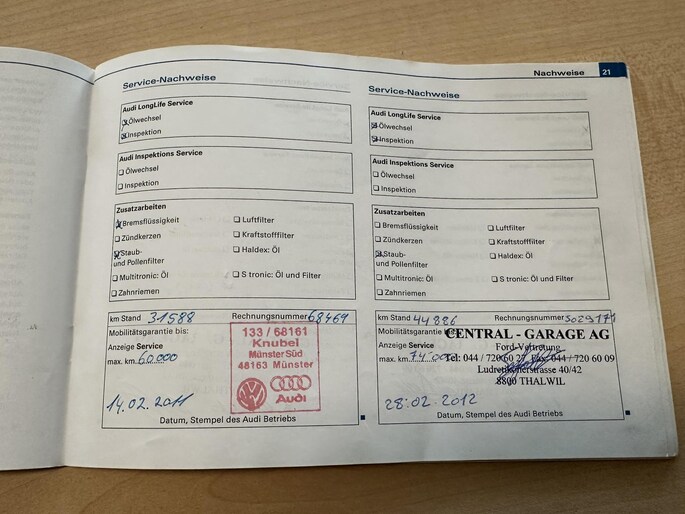 Nachweise 21
Service-Nachweise
Audi LongLife Service
Ölwechsel
Inspektion
Audi Inspektions Service
Ölwechsel
Inspektion
Zusatzarbeiten
Bremsflüssigkeit
Luftfilter
Zündkerzen
Kraftstofffilter
Staub-
und Pollenfilter
Haldex: Öl
Multitronic: Öl
S tronic: Öl und Filter
Zahnriemen
km Stand 31588 Rechnungsnummer 68469
Mobilitätsgarantie bis:
Anzeige Service
max. km 60.000
133 / 68161
Knubel
Münster Süd
48163 Münster
Audi
14.02.2011
Datum, Stempel des Audi Betriebs
Service-Nachweise
Audi LongLife Service
Ölwechsel
Inspektion
Audi Inspektions Service
Ölwechsel
Inspektion
Zusatzarbeiten
Bremsflüssigkeit
Luftfilter
Zündkerzen
Kraftstofffilter
Staub-
und Pollenfilter
Haldex: Öl
Multitronic: Öl
S tronic: Öl und Filter
Zahnriemen
km Stand 44886 Rechnungsnummer
Mobilitätsgarantie
Anzeige Service
max. km 74'000
CENTRAL - GARAGE AG
Ford-Vertretung
Tel: 044 / 720 60 Fax 044 / 720 60 09
40/42
8800 THALWIL
28.02.2012
Datum, Stempel des Audi Betriebs